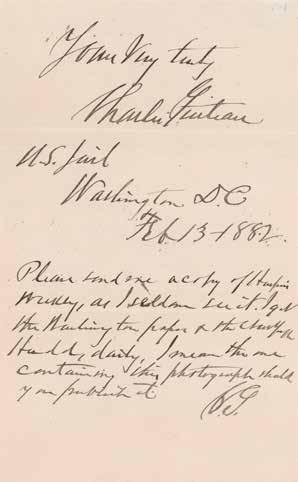 Yours Very truly
Charles Guiteau
U.S. Jail
Washington D.C
Feb. 13-1882.
Please send me a copy of Harpers
Weekly, as I seldom see it. I get
the Washington papers & the
Herald, daily, I mean the one
containing this photograph should
you publish it
C.G.